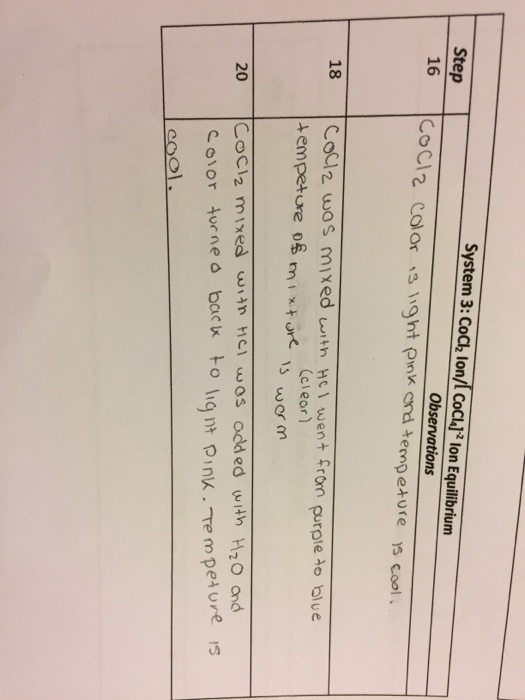 System 3: CoCl₂ Ion/[CoCl₄]⁻² Ion Equilibrium
Step Observations
16 CoCl2 color is light pink and tempeture is cool.
18 CoCl2 was mixed with HCl went from purple to blue
(clear)
tempeture of mixture is warm
20 CoCl2 mixed with HCl was added with H2O and
color turned back to light pink. Tempeture is
cool.